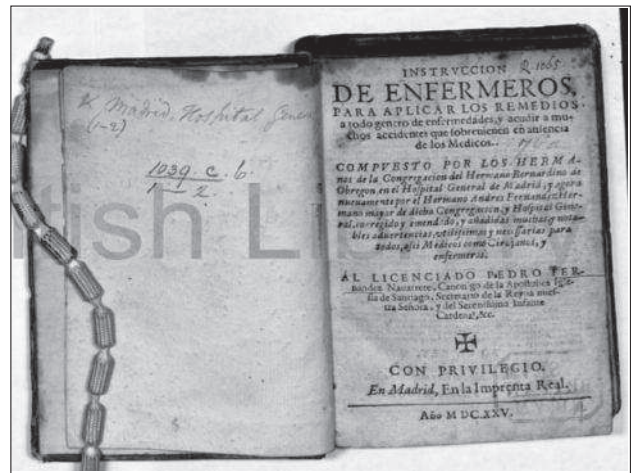 Madrid. Hospital Gener
(1-2)
1039. c. 6.
1-2.
INSTRVCCION
DE ENFERMEROS,
PARA APLICAR LOS REMEDIOS
a todo genero de enfermedades, y acudir a mu-
chos accidentes que sobreuienen en ausencia
de los Medicos.
COMPVESTO POR LOS HERMA-
nos de la Congregacion del Hermano Bernardino de
Obregon, en el Hospital General de Madrid, y agora
nueuamente por el Hermano Andres Fernandez Her-
mano mayor de dicha Congregacion, y Hospital Gene-
ral, corregido y emendado, y añadidas muchas y nota-
bles aduertencias, vtilissimas y necessarias para
todos, assi Medicos como Cirujanos, y
enfermeros.
AL LICENCIADO PEDRO FER-
nandez Nauarrete, Canonigo de la Apostolica Igle-
sia de Santiago, Secretario de la Reyna nues-
tra Señora, y del Serenissimo Infante
Cardenal, &c.
CON PRIVILEGIO.
En Madrid, En la Imprenta Real.
Año M DC.XXV.